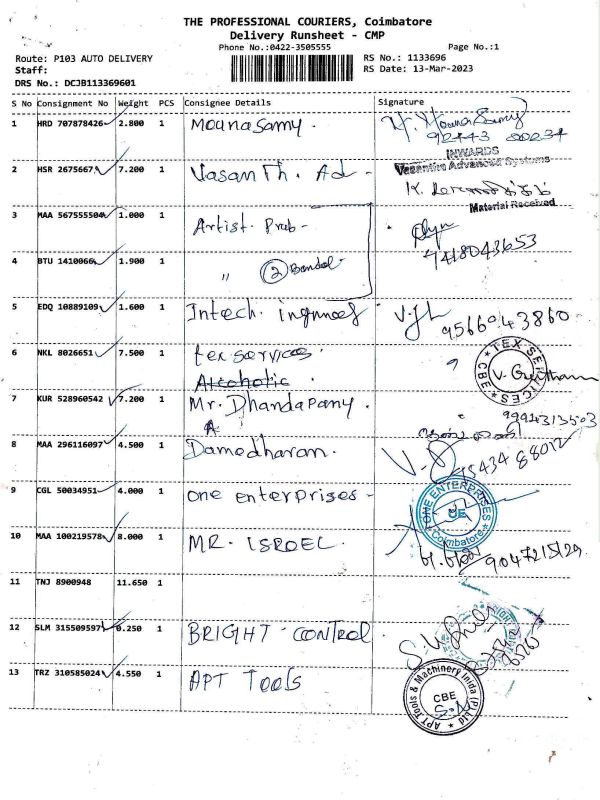 THE PROFESSIONAL COURIERS, Coimbatore
Delivery Runsheet - CMP
Phone No.:0422-3505555 Page No.:1
Route: P103 AUTO DELIVERY RS No.: 1133696
Staff: RS Date: 13-Mar-2023
DRS No.: DCJB113369601
S No Consignment No Weight PCS Consignee Details Signature
1 HRD 707878426 2.800 1 Mounasamy.
INWARDS
2 HSR 2675667 7.200 1 Vasanth. Ad - Vasantha Advanced Systems
Material Received
3 MAA 567555504 1.000 1 Artist. Prab -
7418043653
4 BTU 1410066 1.900 1 " (2) Bandal
5 EDQ 10889109 1.600 1 Intech. 9566043860
6 NKL 8026651 7.500 1 tex services. TEX SERVICES CBE
Alcohotic
7 KUR 528960542 7.200 1 Mr. Dhandapany. 9994313503
8 MAA 296116097 4.500 1 Damodharan.
9 CGL 50034951 4.000 1 one enterprises - ONE ENTERPRISES Coimbatore
10 MAA 100219578 8.000 1 MR. ISROEL.
11 TNJ 8900948 11.650 1
12 SLM 315509597 0.250 1 BRIGHT - CONTROL
13 TRZ 310585024 4.550 1 APT Tools APT Tools & Machinery Inida (P) Ltd CBE